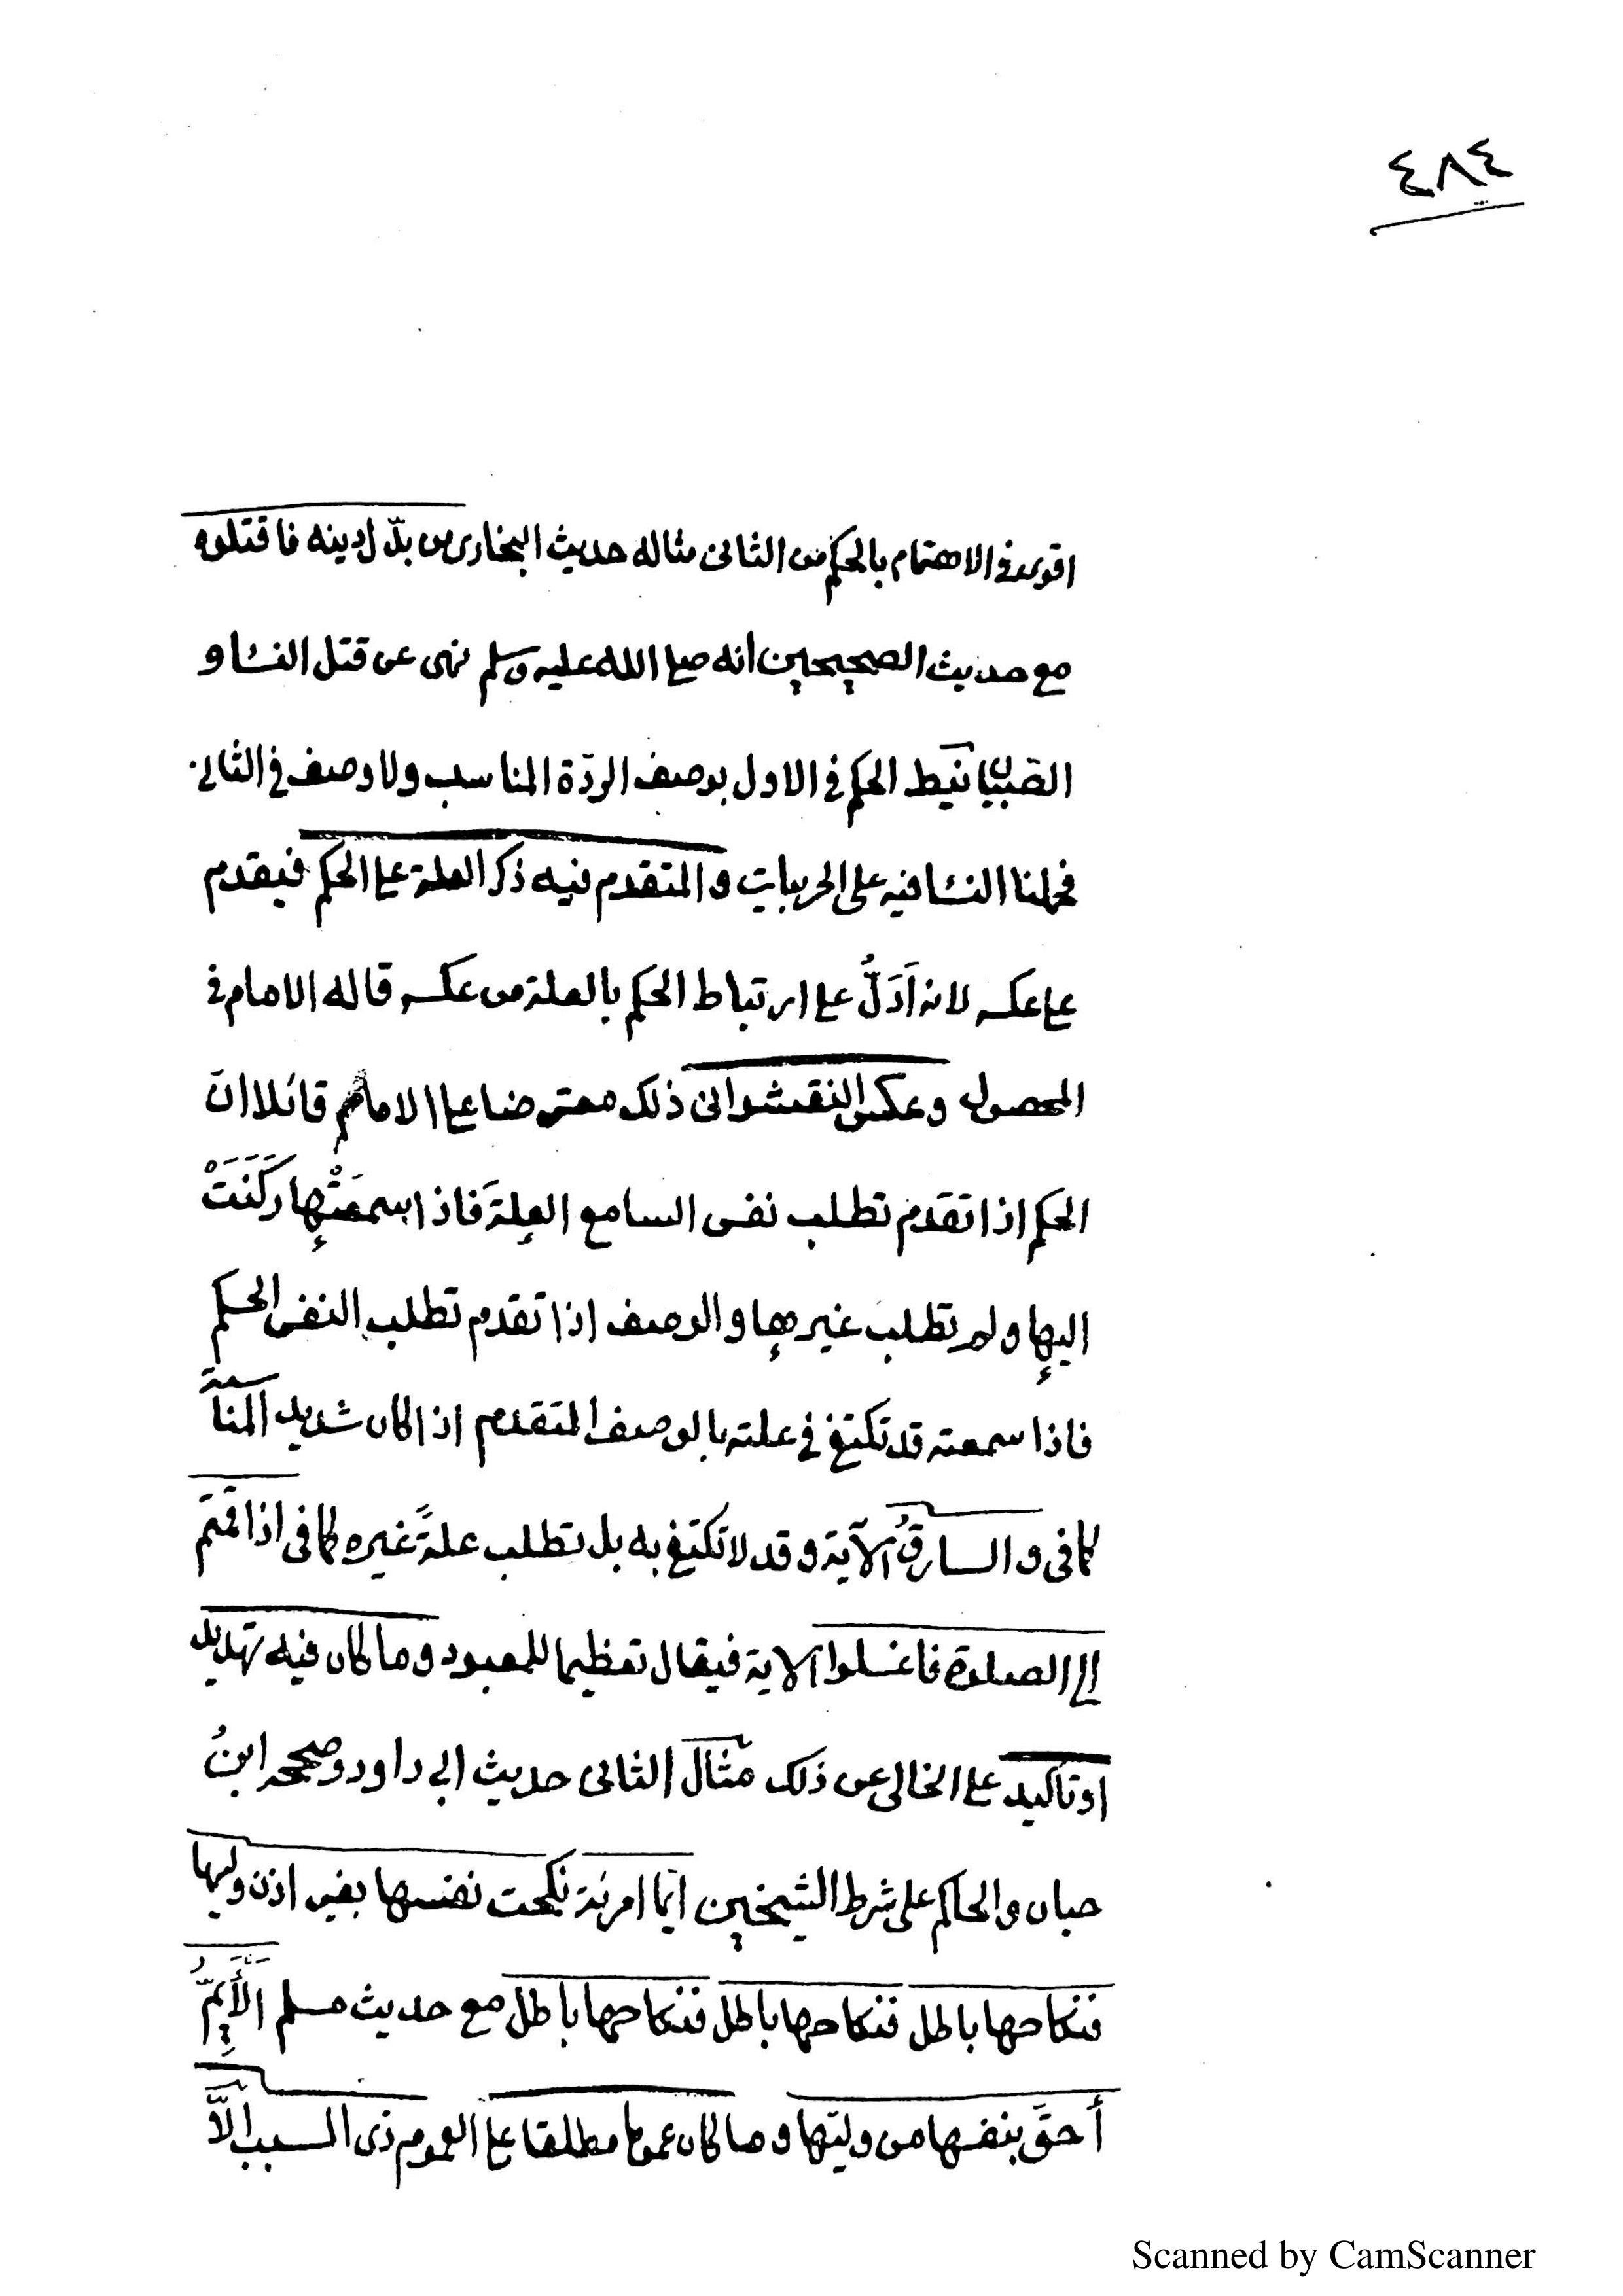 ٤٨٤
اقوى فى الاهتمام بالحكم من الثانى مثاله حديث البخارى من بدّل دينه فاقتلوه
مع حديث الصحيحين انه صلى الله عليه وسلم نهى عن قتل النساء و
الصبيان نيط الحكم فى الاول بوصف الردّة المناسب ولا وصف فى الثانى
فحملنا النساء فيه على الحربيات والمتقدم فيه ذكر العلة على الحكم فيقدم
على عكسه لانه اَدَلُّ على ارتباط الحكم بالعلة من عكسه قاله الامام فى
المحصول وعكس النقشوانى ذلك معترضا على الامام قائلا ان
الحكم اذا تقدم تطلب نفس السامع العلةَ فاذا سمعَتْها رَكَنَتْ
اليها ولم تطلب غيرها والوصف اذا تقدم تطلب النفس الحكم
فاذا سمعته قد تكتفى فى علته بالوصف المتقدم اذا كان شديد المناسبة
كما فى والسارقُ الآية وقد لا تكتفى به بل تطلب علةً غيره كما فى اذا قمتم
الى الصلوة فاغسلوا الاية فيقال تعظيما للمعبود وما كان فيه تهديد
او تاكيد على الخالى عن ذلك مثال الثانى حديث ابى داود وصححه ابنُ
حبان والحاكم على شرط الشيخين ايّما امرئة نكحت نفسها بغير اذن وليها
فنكاحها باطل فنكاحها باطل فنكاحها باطل مع حديث مسلم الْأَيِّمُ
أحقّ بنفسها من وليّها وما كان عموما مطلقا على العموم ذى السبب الّا
Scanned by CamScanner